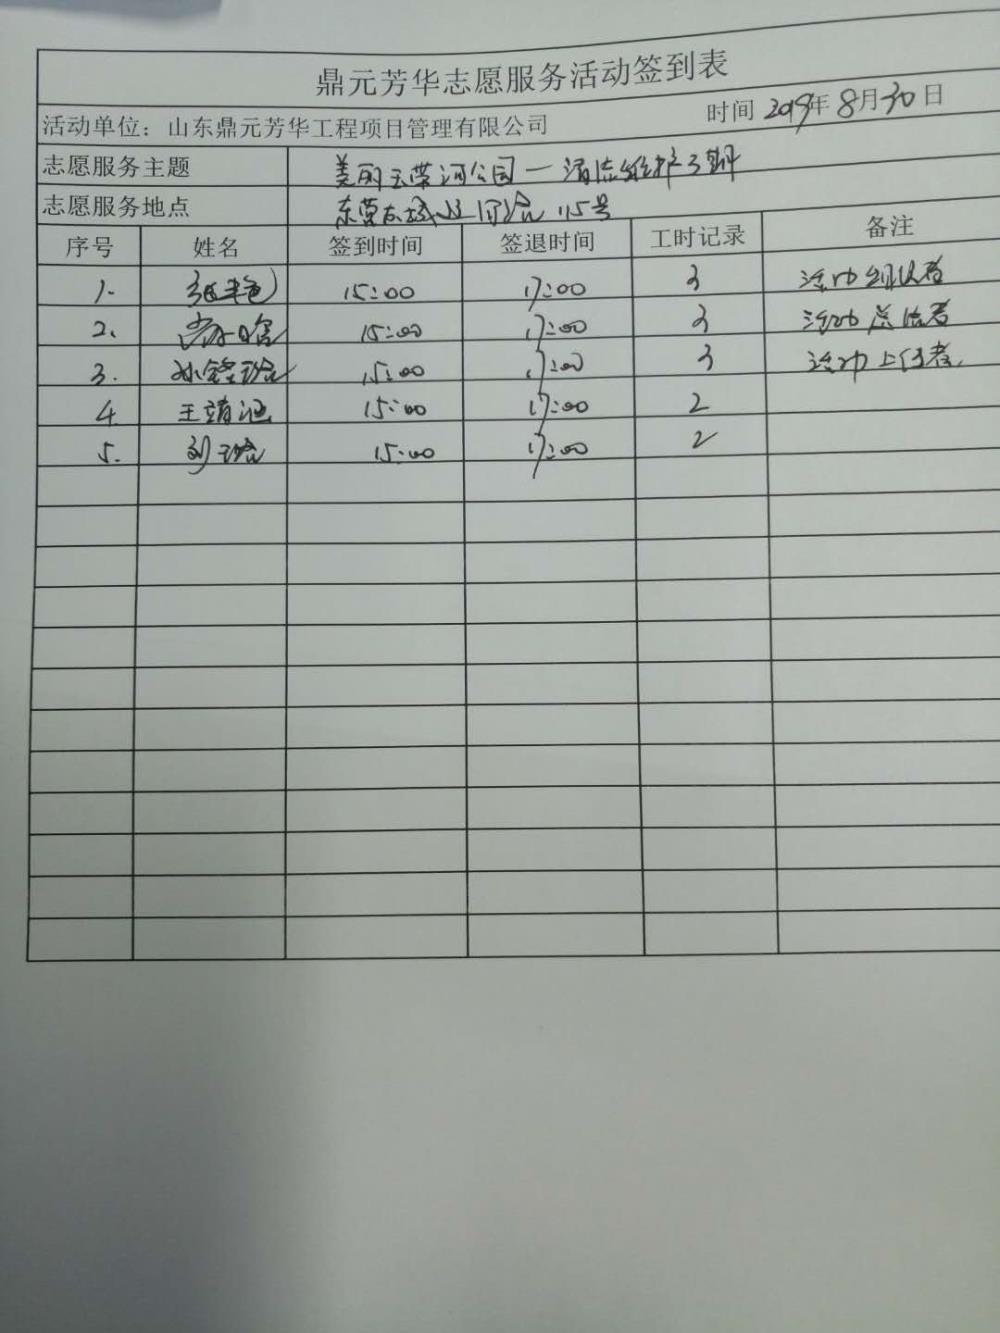 鼎元芳华志愿服务活动签到表
活动单位：山东鼎元芳华工程项目管理有限公司 时间 2019年8月30日
志愿服务主题 美丽玉带河公园一清洁维护3期
志愿服务地点 东营东城 115号
序号 姓名 签到时间 签退时间 工时记录 备注
1. 15:00 17:00 3 活动组织者
2. 15:00 17:00 3 活动总结者
3. 15:00 17:00 3 活动上传者
4. 王靖涵 15:00 17:00 2
5. 刘 15:00 17:00 2